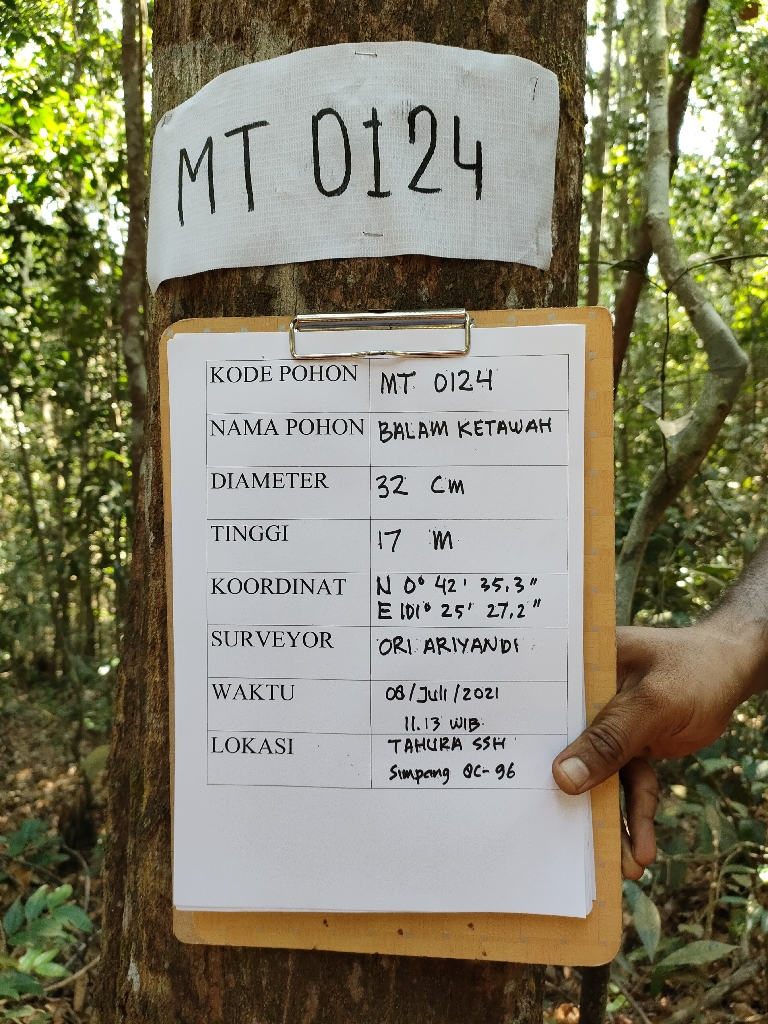 MT 0124
KODE POHON MT 0124
NAMA POHON BALAM KETAWAH
DIAMETER 32 Cm
TINGGI 17 M
KOORDINAT N 0° 42' 35.3"
E 101° 25' 27.2"
SURVEYOR ORI ARIYANDI
WAKTU 08/Juli/2021
11.13 WIB
LOKASI TAHURA SSH
Simpang QC-96